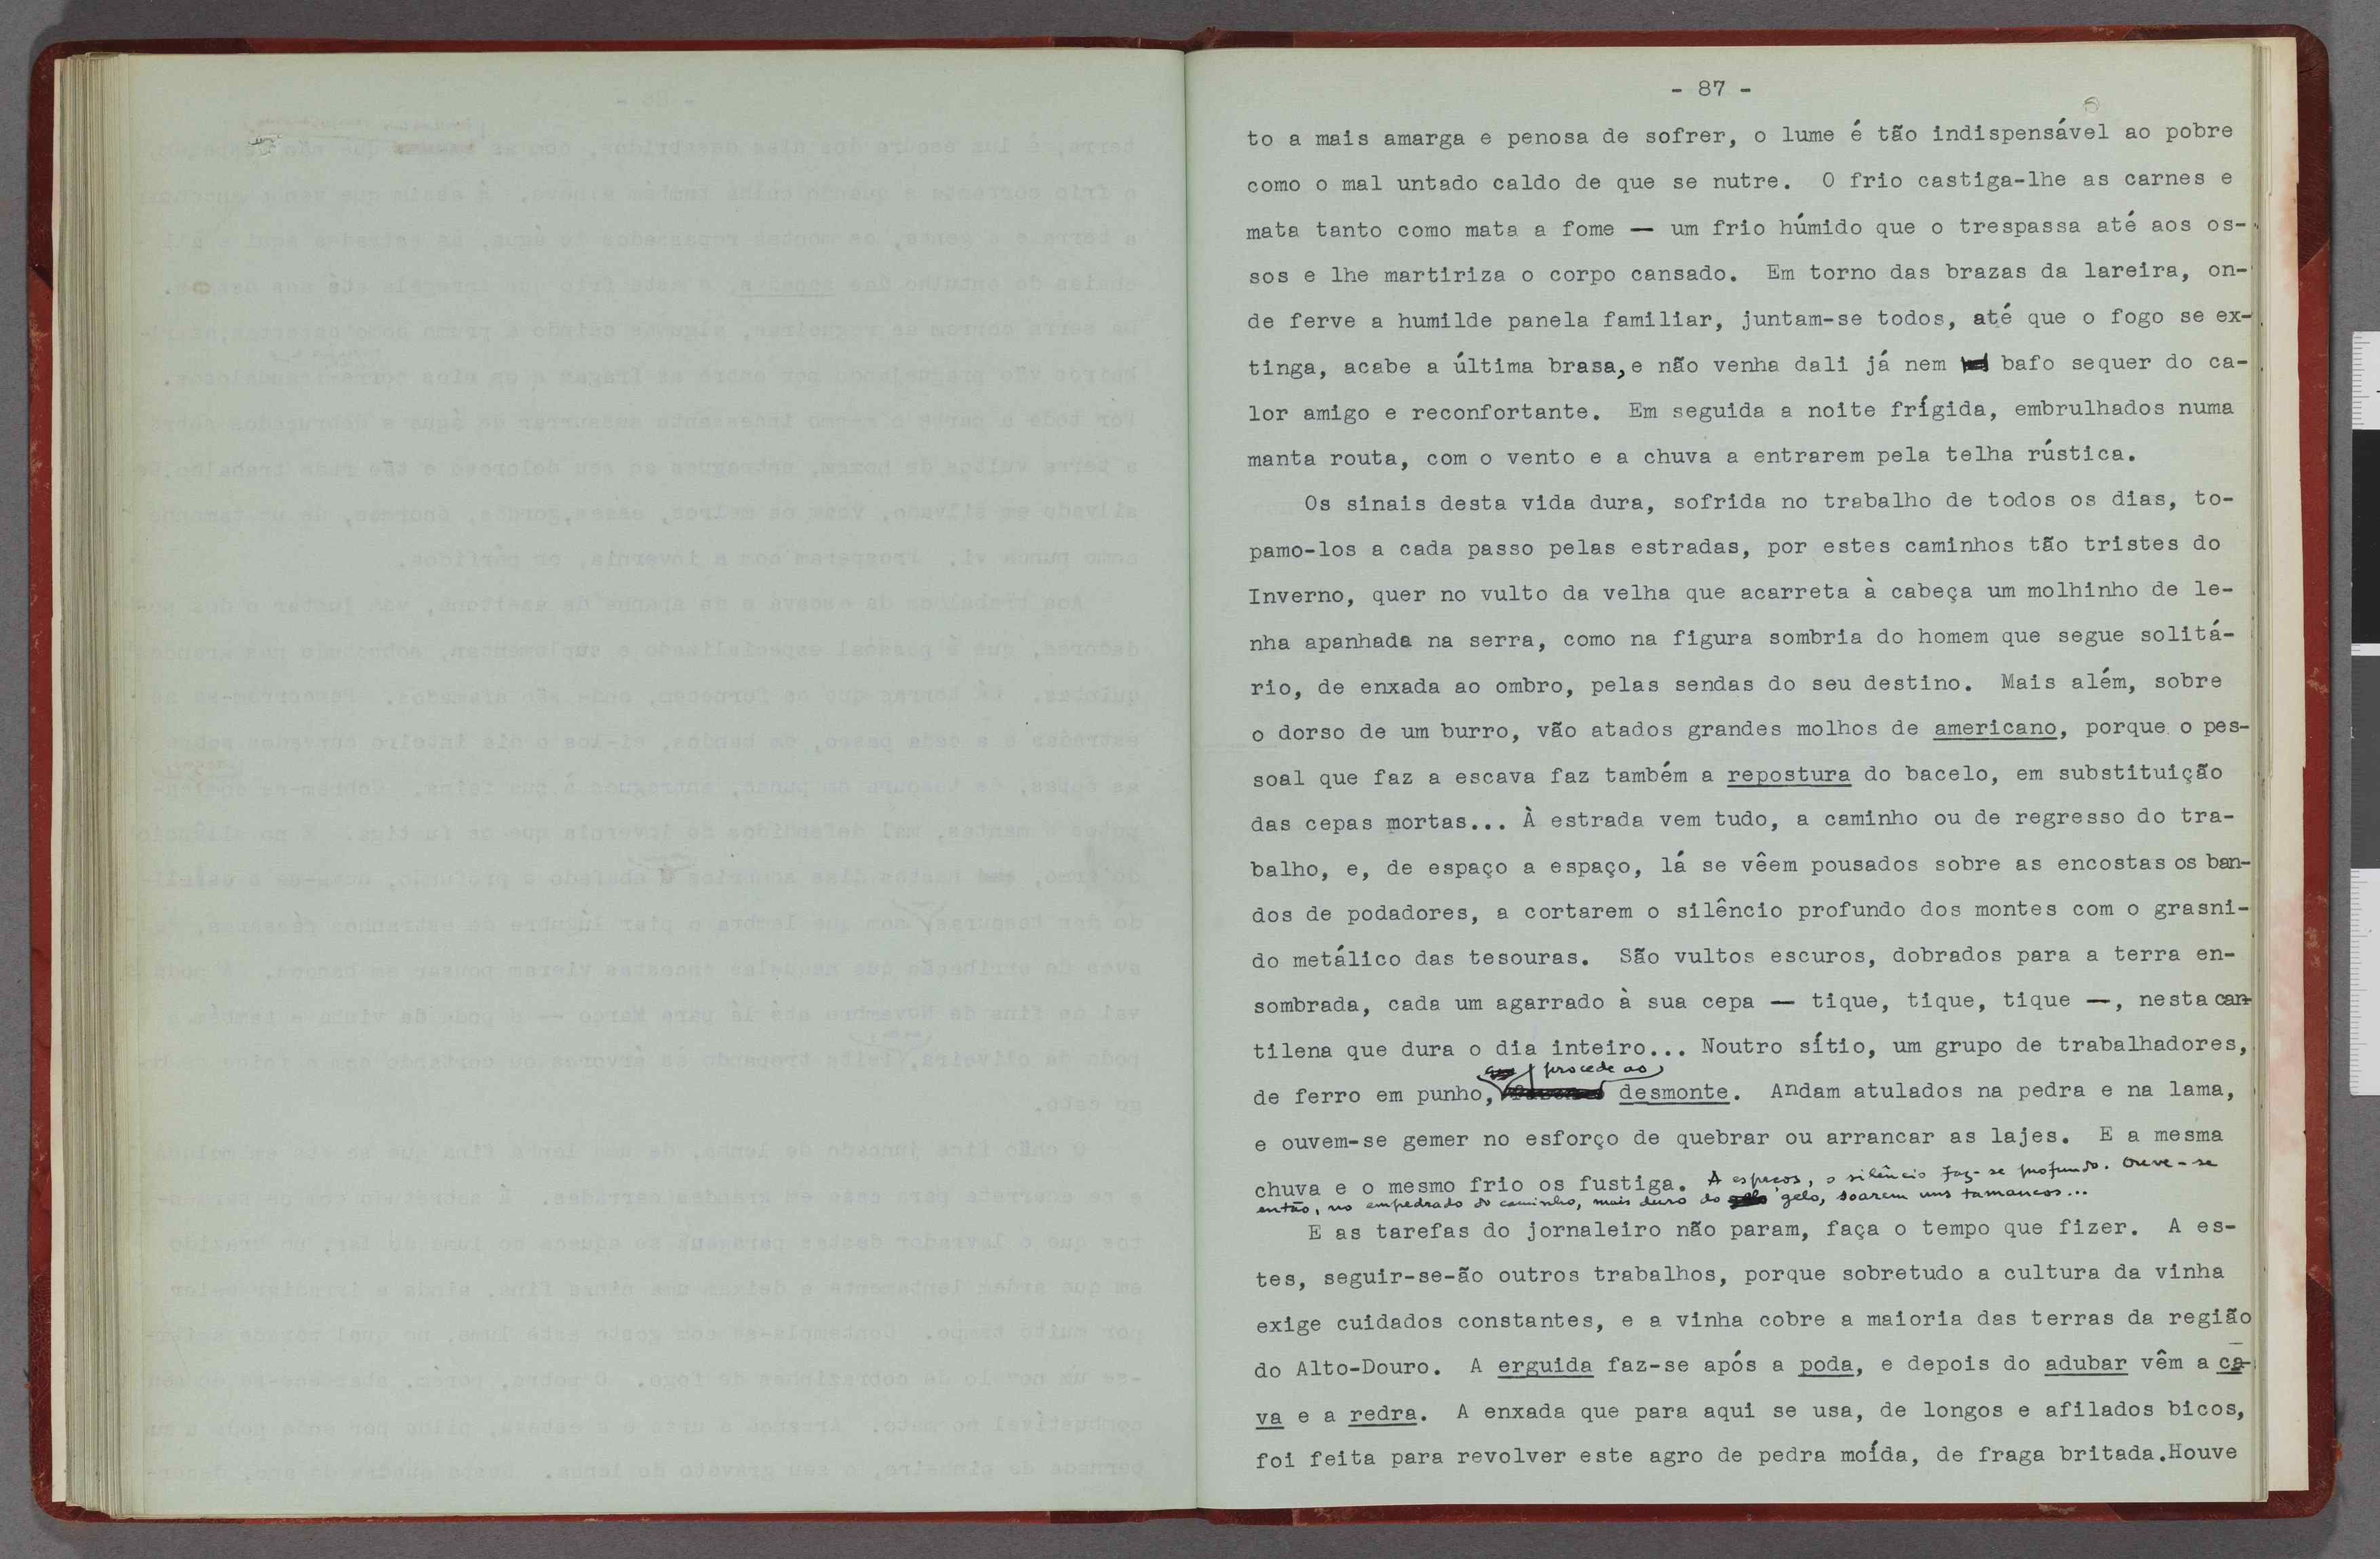 - 87 -
to a mais amarga e penosa de sofrer, o lume é tão indispensável ao pobre
como o mal untado caldo de que se nutre. O frio castiga-lhe as carnes e
mata tanto como mata a fome — um frio húmido que o trespassa até aos os-
sos e lhe martiriza o corpo cansado. Em torno das brazas da lareira, on-
de ferve a humilde panela familiar, juntam-se todos, até que o fogo se ex-
tinga, acabe a última brasa, e não venha dali já nem bafo sequer do ca-
lor amigo e reconfortante. Em seguida a noite frígida, embrulhados numa
manta routa, com o vento e a chuva a entrarem pela telha rústica.
Os sinais desta vida dura, sofrida no trabalho de todos os dias, to-
pamo-los a cada passo pelas estradas, por estes caminhos tão tristes do
Inverno, quer no vulto da velha que acarreta à cabeça um molhinho de le-
nha apanhada na serra, como na figura sombria do homem que segue solitá-
rio, de enxada ao ombro, pelas sendas do seu destino. Mais além, sobre
o dorso de um burro, vão atados grandes molhos de americano, porque o pes-
soal que faz a escava faz também a repostura do bacelo, em substituição
das cepas mortas... À estrada vem tudo, a caminho ou de regresso do tra-
balho, e, de espaço a espaço, lá se vêem pousados sobre as encostas os ban-
dos de podadores, a cortarem o silêncio profundo dos montes com o grasni-
do metálico das tesouras. São vultos escuros, dobrados para a terra en-
sombrada, cada um agarrado à sua cepa — tique, tique, tique —, nesta can-
tilena que dura o dia inteiro... Noutro sítio, um grupo de trabalhadores,
procede ao
de ferro em punho, desmonte. Andam atulados na pedra e na lama,
e ouvem-se gemer no esforço de quebrar ou arrancar as lajes. E a mesma
chuva e o mesmo frio os fustiga. A espaços, o silêncio faz-se profundo. Ouve-se
então, no empedrado do caminho, mais duro do gelo, soarem uns tamancos...
E as tarefas do jornaleiro não param, faça o tempo que fizer. A es-
tes, seguir-se-ão outros trabalhos, porque sobretudo a cultura da vinha
exige cuidados constantes, e a vinha cobre a maioria das terras da região
do Alto-Douro. A erguida faz-se após a poda, e depois do adubar vêm a ca-
va e a redra. A enxada que para aqui se usa, de longos e afilados bicos,
foi feita para revolver este agro de pedra moída, de fraga britada. Houve